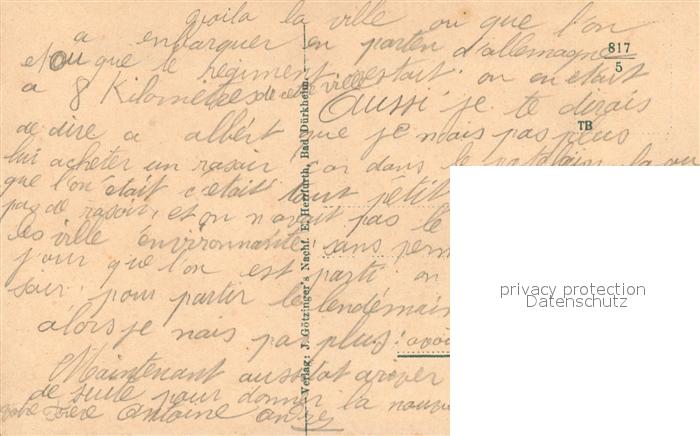 voila la ville ou que l'on
a embarquer en parten d'allemagne
et ou que le regiment etait. on en etait
a 8 Kilometres de cette ville
Aussi je te dirais
de dire a albért que je nais pas peus
lui acheter un rasoir. car dans le la ou
que l'on etait c'etait tout petit
pas de rasoir, et on n'avait pas le
les ville environnante, sans perm
jour que l'on est parti. on
soir. pour partir le lendemain
alors je nais pas plus.
Maintenant aussitot arover
de suite pour donner la nouve
votre Frère Antoine
817
5
TB
Verlag: J. Götzinger's Nachf. E. Herrfurth, Bad Dürkheim.
privacy protection
Datenschutz